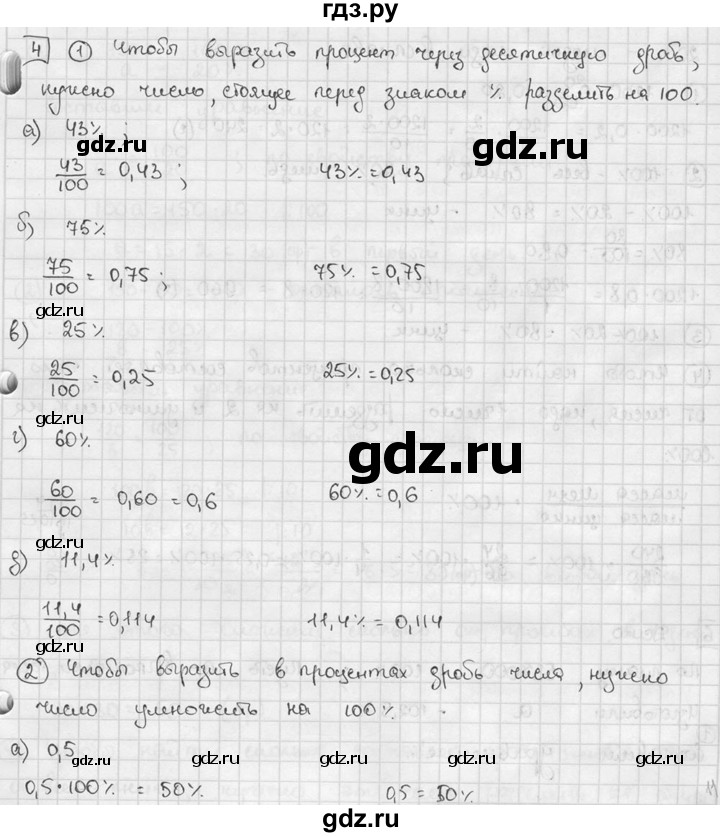 гдз.ру
4 ① Чтобы выразить процент через десятичную дробь,
нужно число, стоящее перед знаком % разделить на 100.
а) 43% ;
gdz.ru gdz.ru gdz.ru
43/100 = 0,43 ; 43% = 0,43
б) 75%
75/100 = 0,75 ; 75% = 0,75
gdz.ru gdz.ru
в) 25%
gdz.ru
25/100 = 0,25 25% = 0,25
gdz.ru
г) 60%
gdz.ru
60/100 = 0,60 = 0,6 60% = 0,6
gdz.ru
д) 11,4%
11,4/100 = 0,114 11,4% = 0,114
gdz.ru gdz.ru
② Чтобы выразить в процентах дробь числа, нужно
число умножить на 100%.
а) 0,5
gdz.ru gdz.ru gdz.ru gdz.ru
0,5 · 100% = 50% 0,5 = 50%
gdz.ru gdz.ru